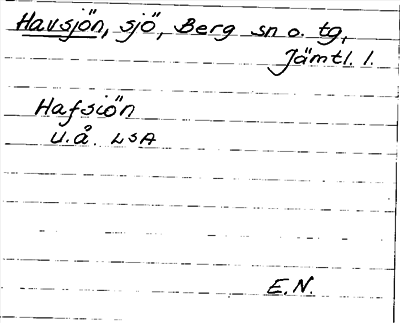 Havsjön, sjö, Berg sn o. tg,
Jämtl. l.
Hafsiön
u.å. LSA
E.N.